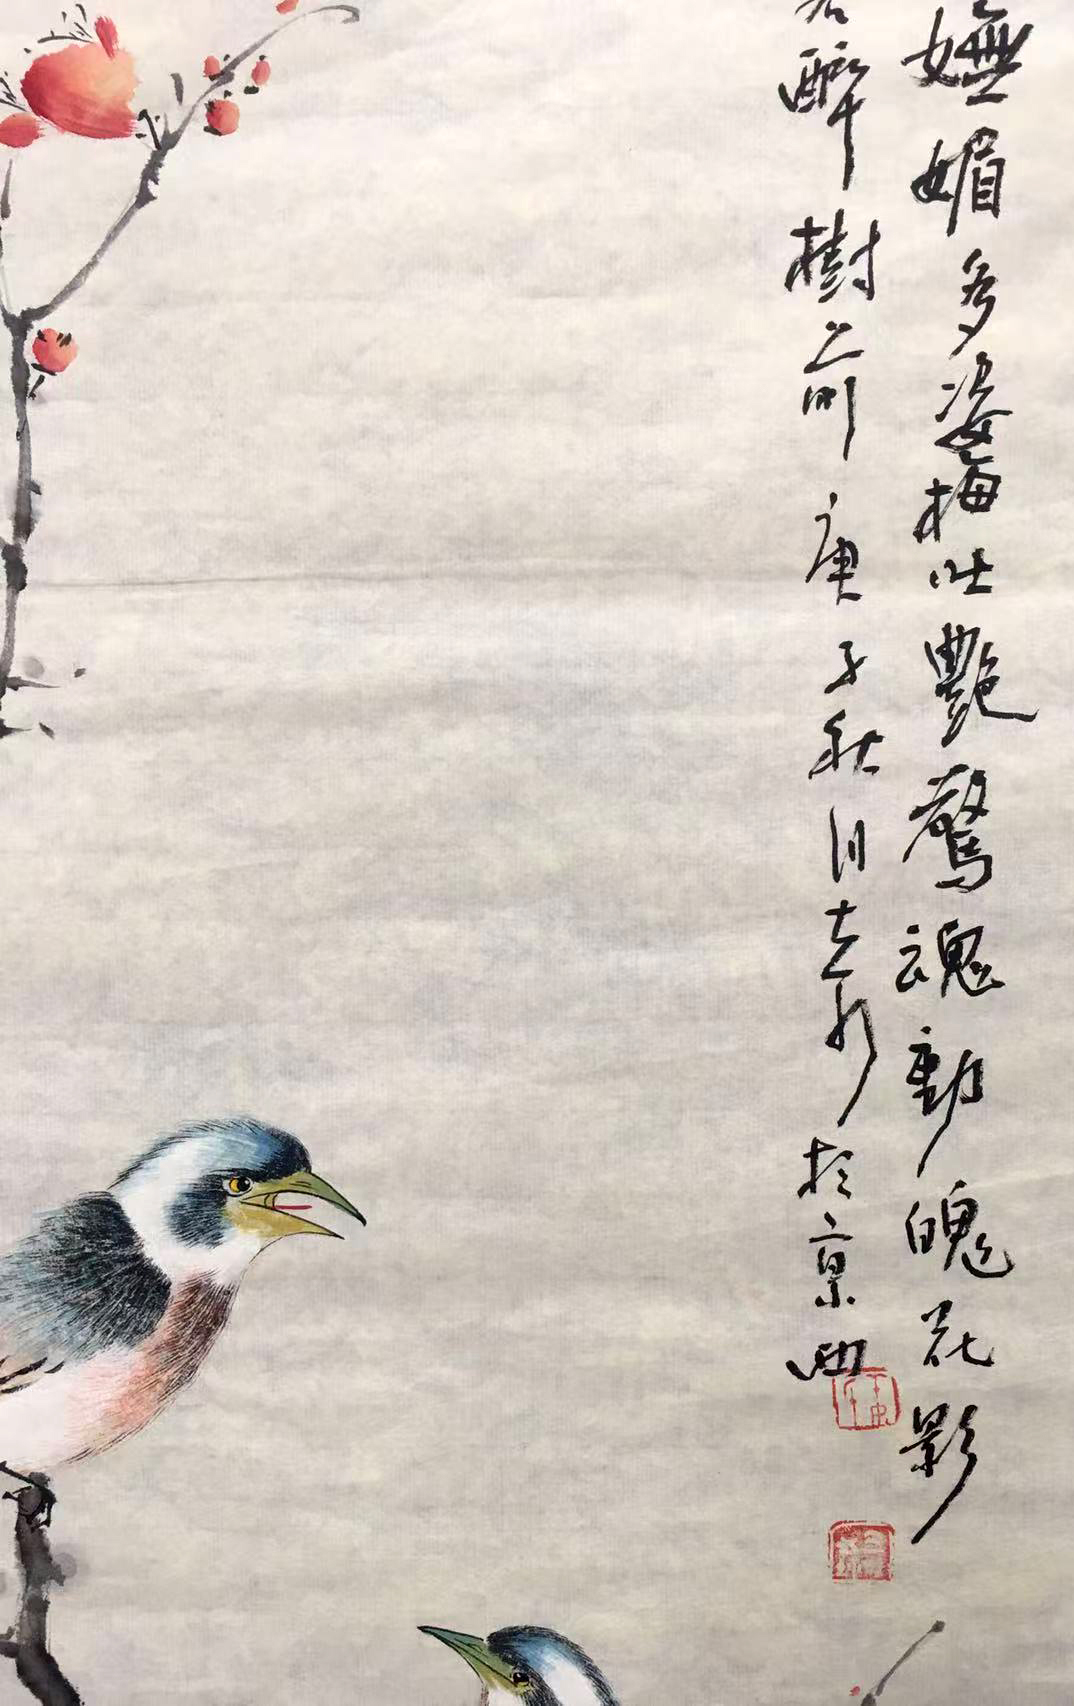 嫵媚多姿梅吐艷驚魂動魄花影
醉樹前庚子秋月志於京西